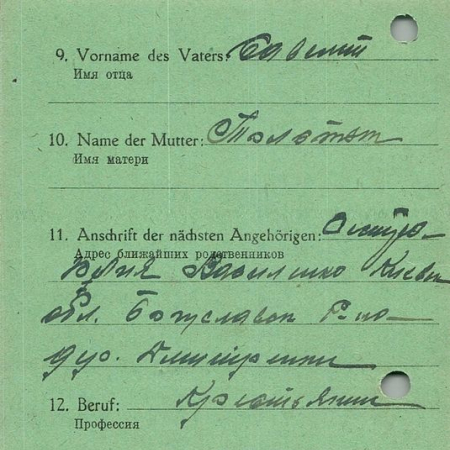 9. Vorname des Vaters: Савелий
Имя отца
10. Name der Mutter:
Имя матери
11. Anschrift der nächsten Angehörigen:
Адрес ближайших родственников
Василенко Киевск
обл. Богуславск Р-но
дер.
12. Beruf: Крестьянин
Профессия